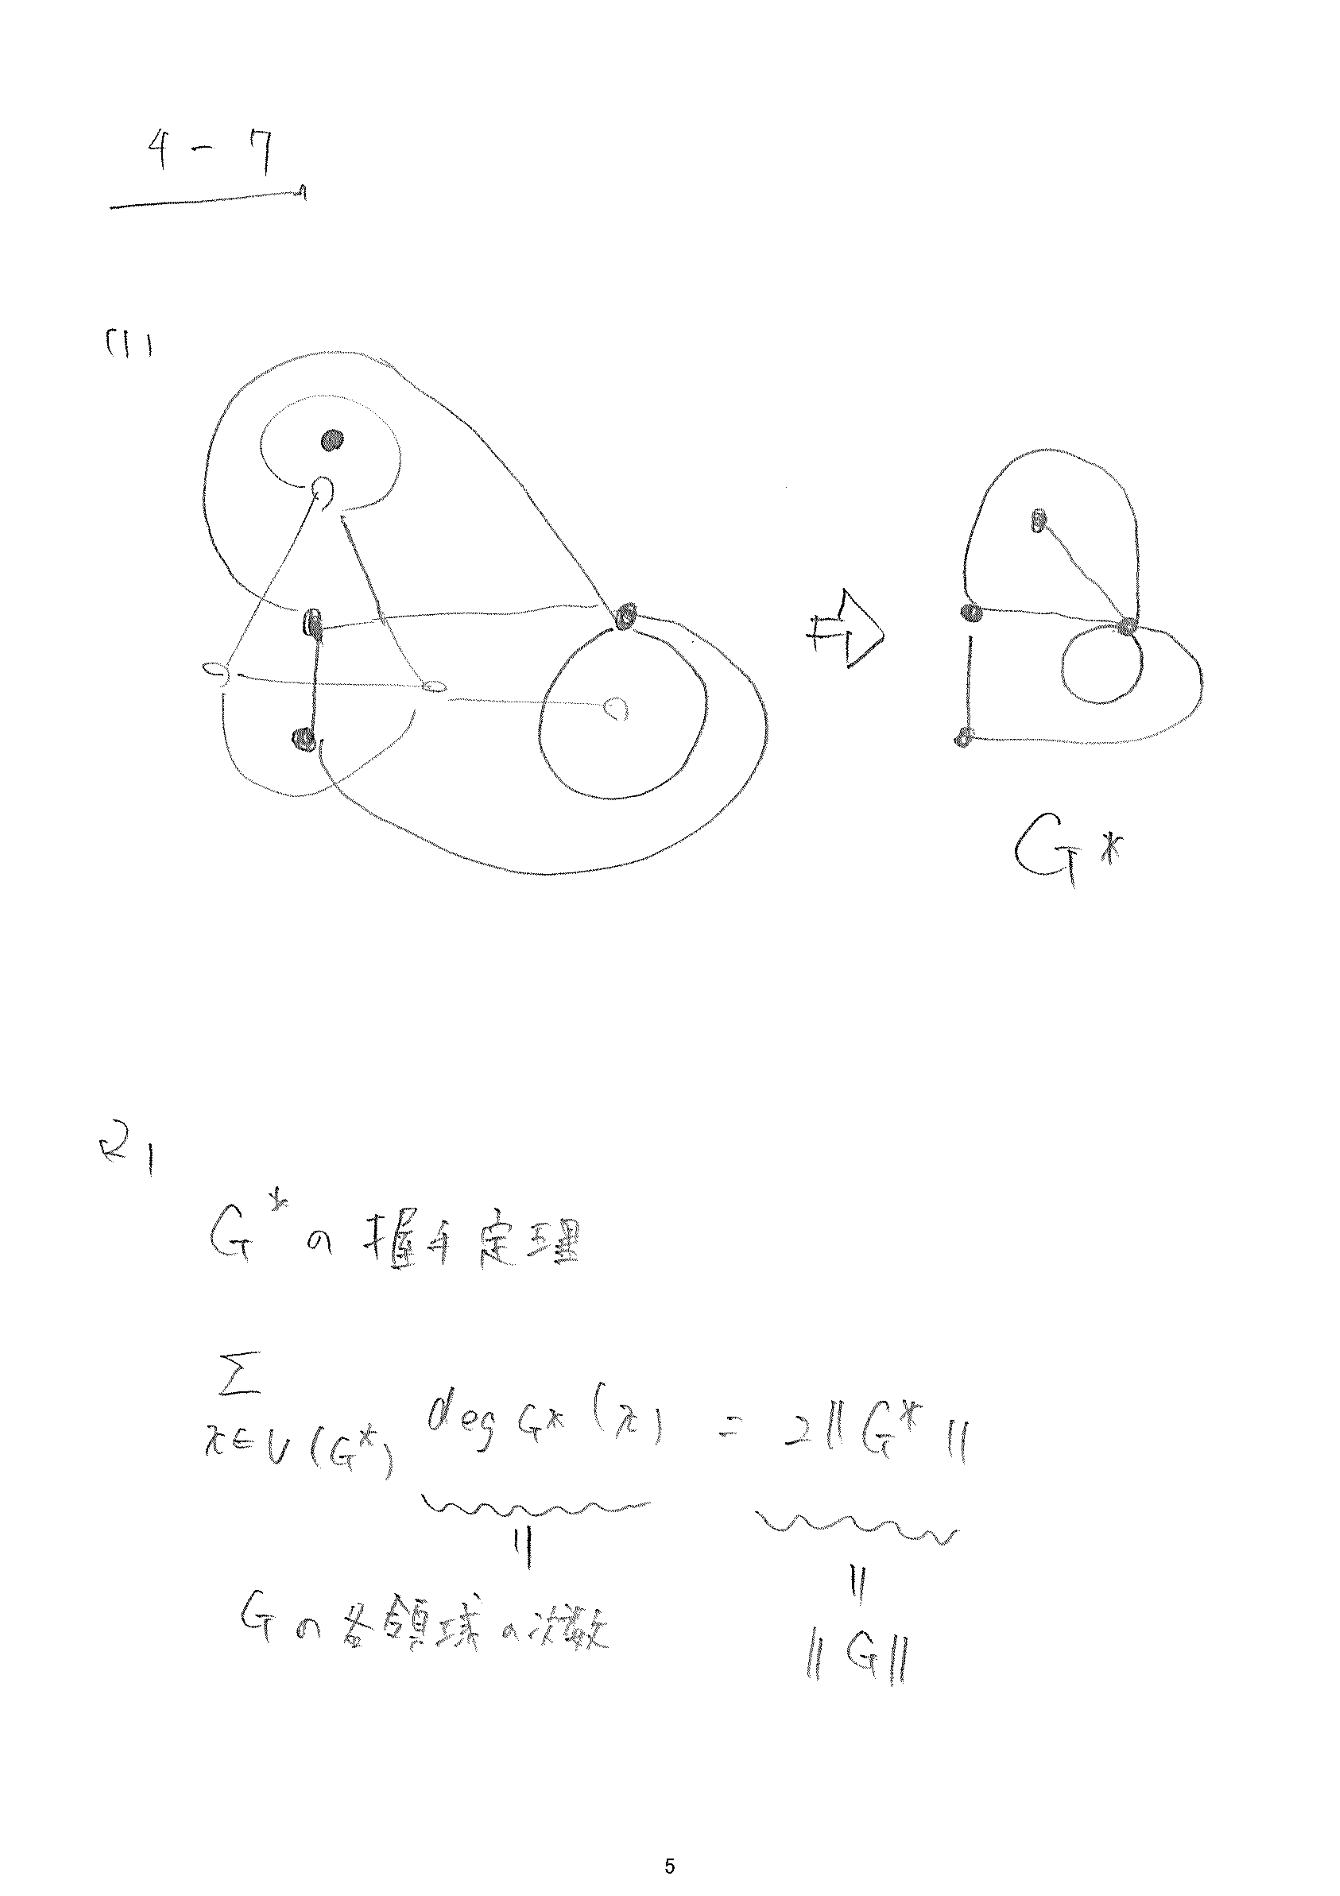 4-7
(1)
G*
(2)
G*の握手定理
Σ deg G*(x) = 2‖G*‖
x∈V(G*)
‖ ‖
Gの各領域の次数 ‖G‖
5